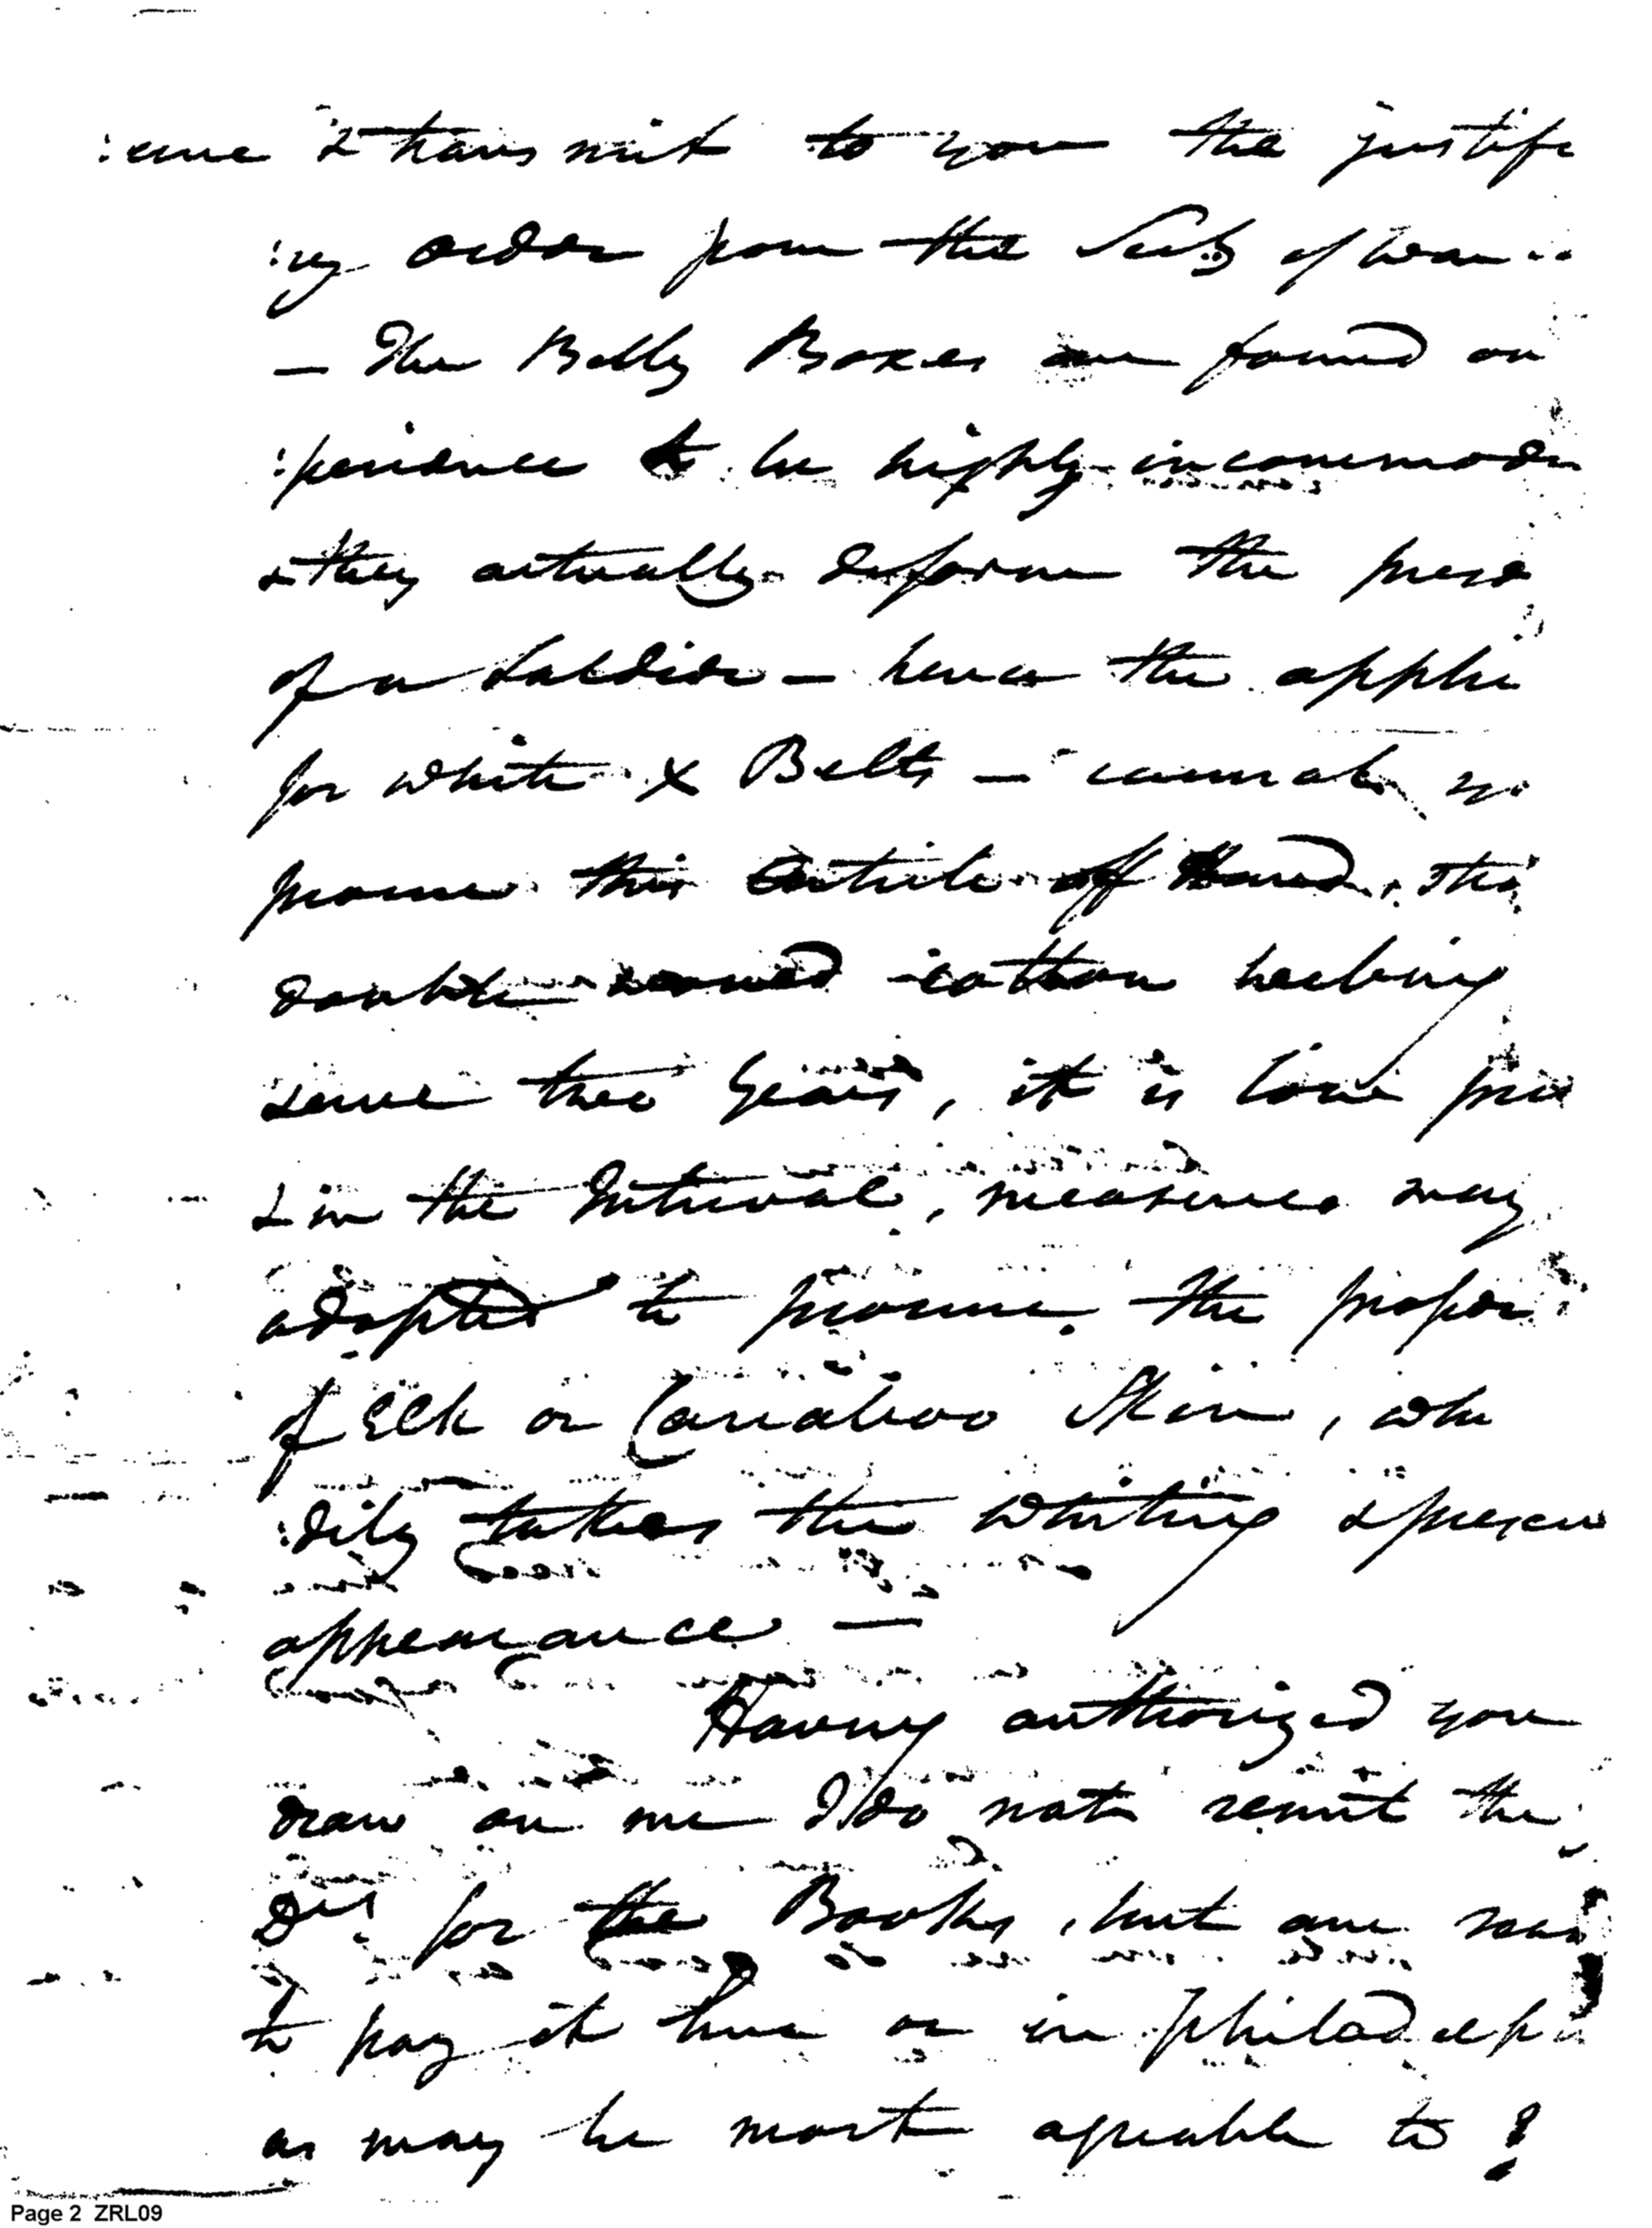 :cure & transmit to you the justify
:ing order from the Secty of War
— The Belly Boxes are found on
:perience to be highly incommod
& they actually deform the
of a Soldier — hence the applic
for white X Belts — cannot yo
procure this article off hand, the
double woved cotton
serve two Years, it is low
& in the Interval, measures may
adopted to procure the proper
of Elk or Carraboo Skin, whi
:dily takes the whiting & preserv
appearance —
Having authorized you
draw on me I do not remit the
Drs for the Books, but am rea
to pay it here or in philadelph
as may be most agreable to
Page 2 ZRL09